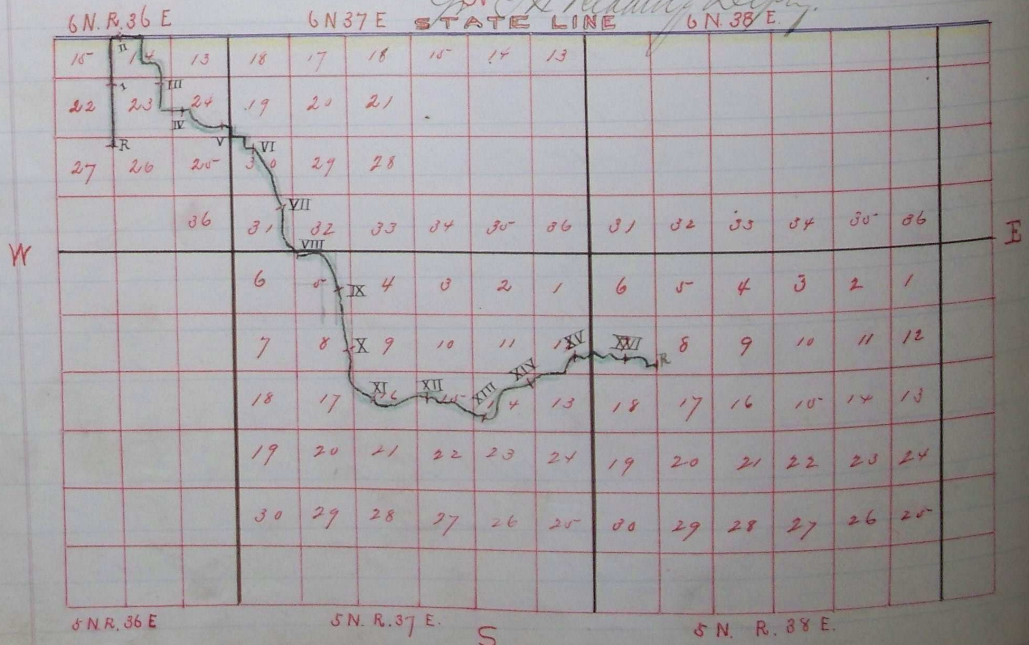 6 N. R. 36 E 6 N 37 E STATE LINE 6 N. 38 E.
15 14 13 18 17 18 15 14 13
II
I III
22 23 24 19 20 21
IV V VI
R
27 26 25 30 29 28
VII
36 31 32 33 34 35 36 31 32 33 34 35 36
W E
VIII
6 5 4 3 2 1 6 5 4 3 2 1
IX
7 8 X 9 10 11 12 XV XVI R 8 9 10 11 12
XI XII XIII XIV
18 17 16 15 14 13 18 17 16 15 14 13
19 20 21 22 23 24 19 20 21 22 23 24
30 29 28 27 26 25 30 29 28 27 26 25
5 N. R. 36 E 5 N. R. 37 E. 5 N. R. 38 E.
S